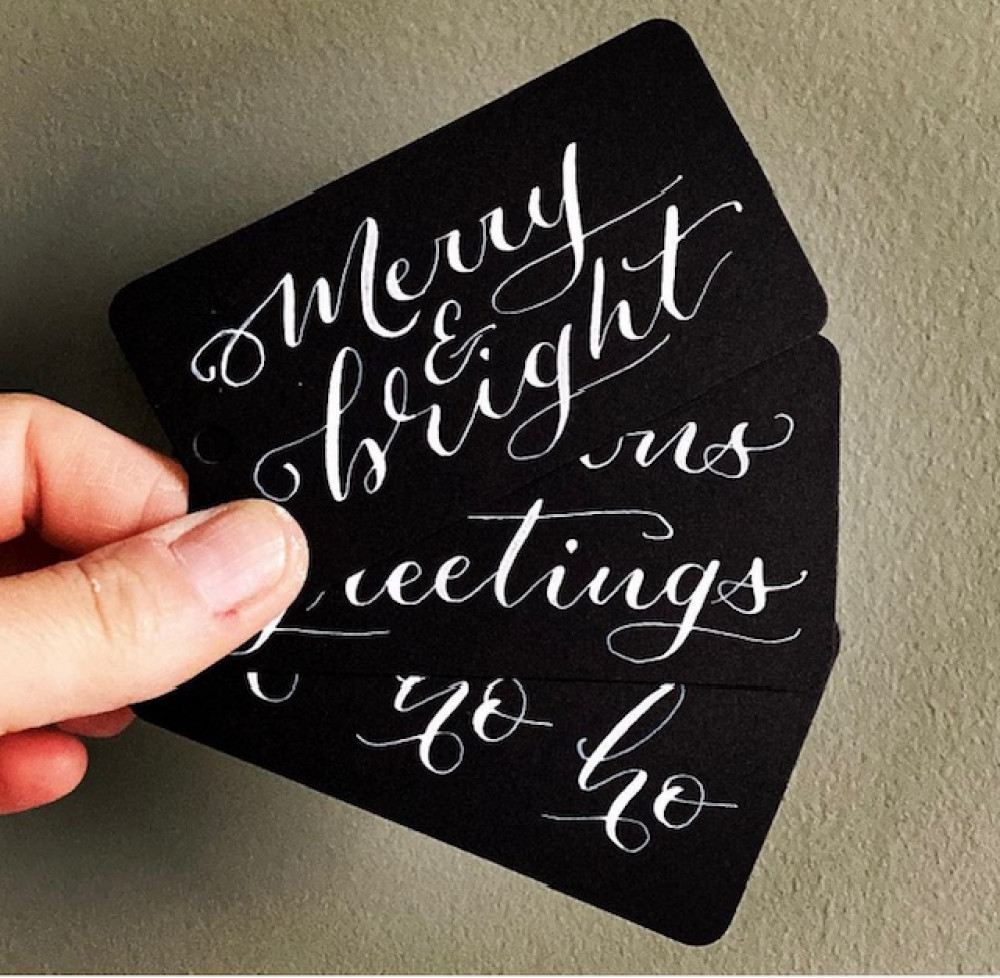 Merry
&
bright
ns
reetings
ho
ho